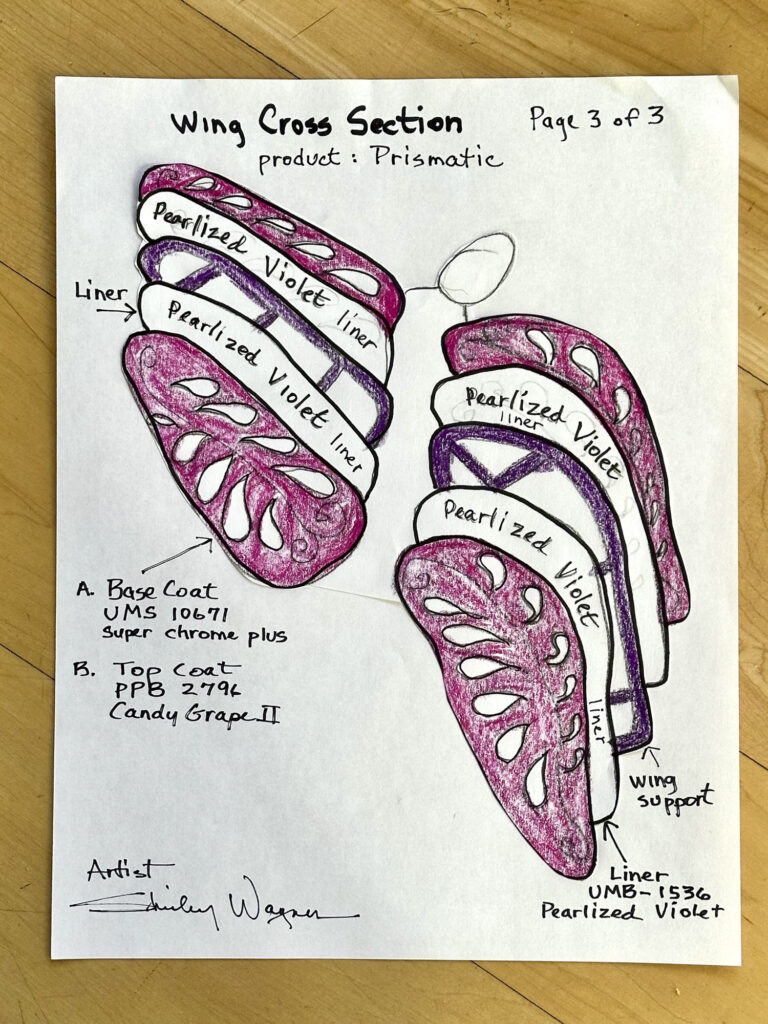 Wing Cross Section
Page 3 of 3
product : Prismatic
Pearlized Violet liner
Liner
Pearlized Violet liner
Pearlized Violet
liner
Pearlized Violet liner
A. Base Coat
UMS 10671
super chrome plus
B. Top Coat
PPB 2796
Candy Grape II
wing
support
Liner
UMB-1536
Pearlized Violet
Artist
Shirley Wagner